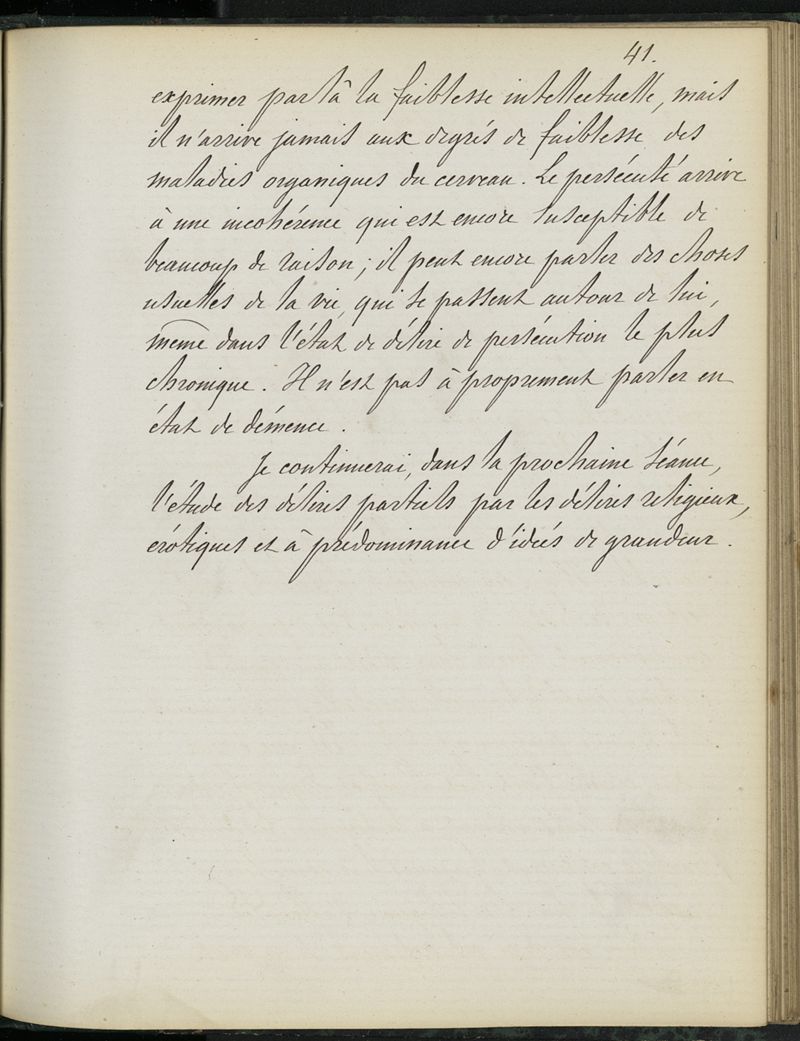 41.
exprimer par là la faiblesse intellectuelle, mais
il n'arrive jamais aux degrés de faiblesse des
maladies organiques du cerveau. Le persécuté arrive
à une incohérence qui est encore susceptible de
beaucoup de raison; il peut encore parler des choses
usuelles de la vie, qui se passent autour de lui,
même dans l'état de délire de persécution le plus
chronique. Il n'est pas à proprement parler en
état de démence.
Je continuerai, dans la prochaine séance,
l'étude des délires partiels par les délires religieux,
érotiques et à prédominance d'idées de grandeur.